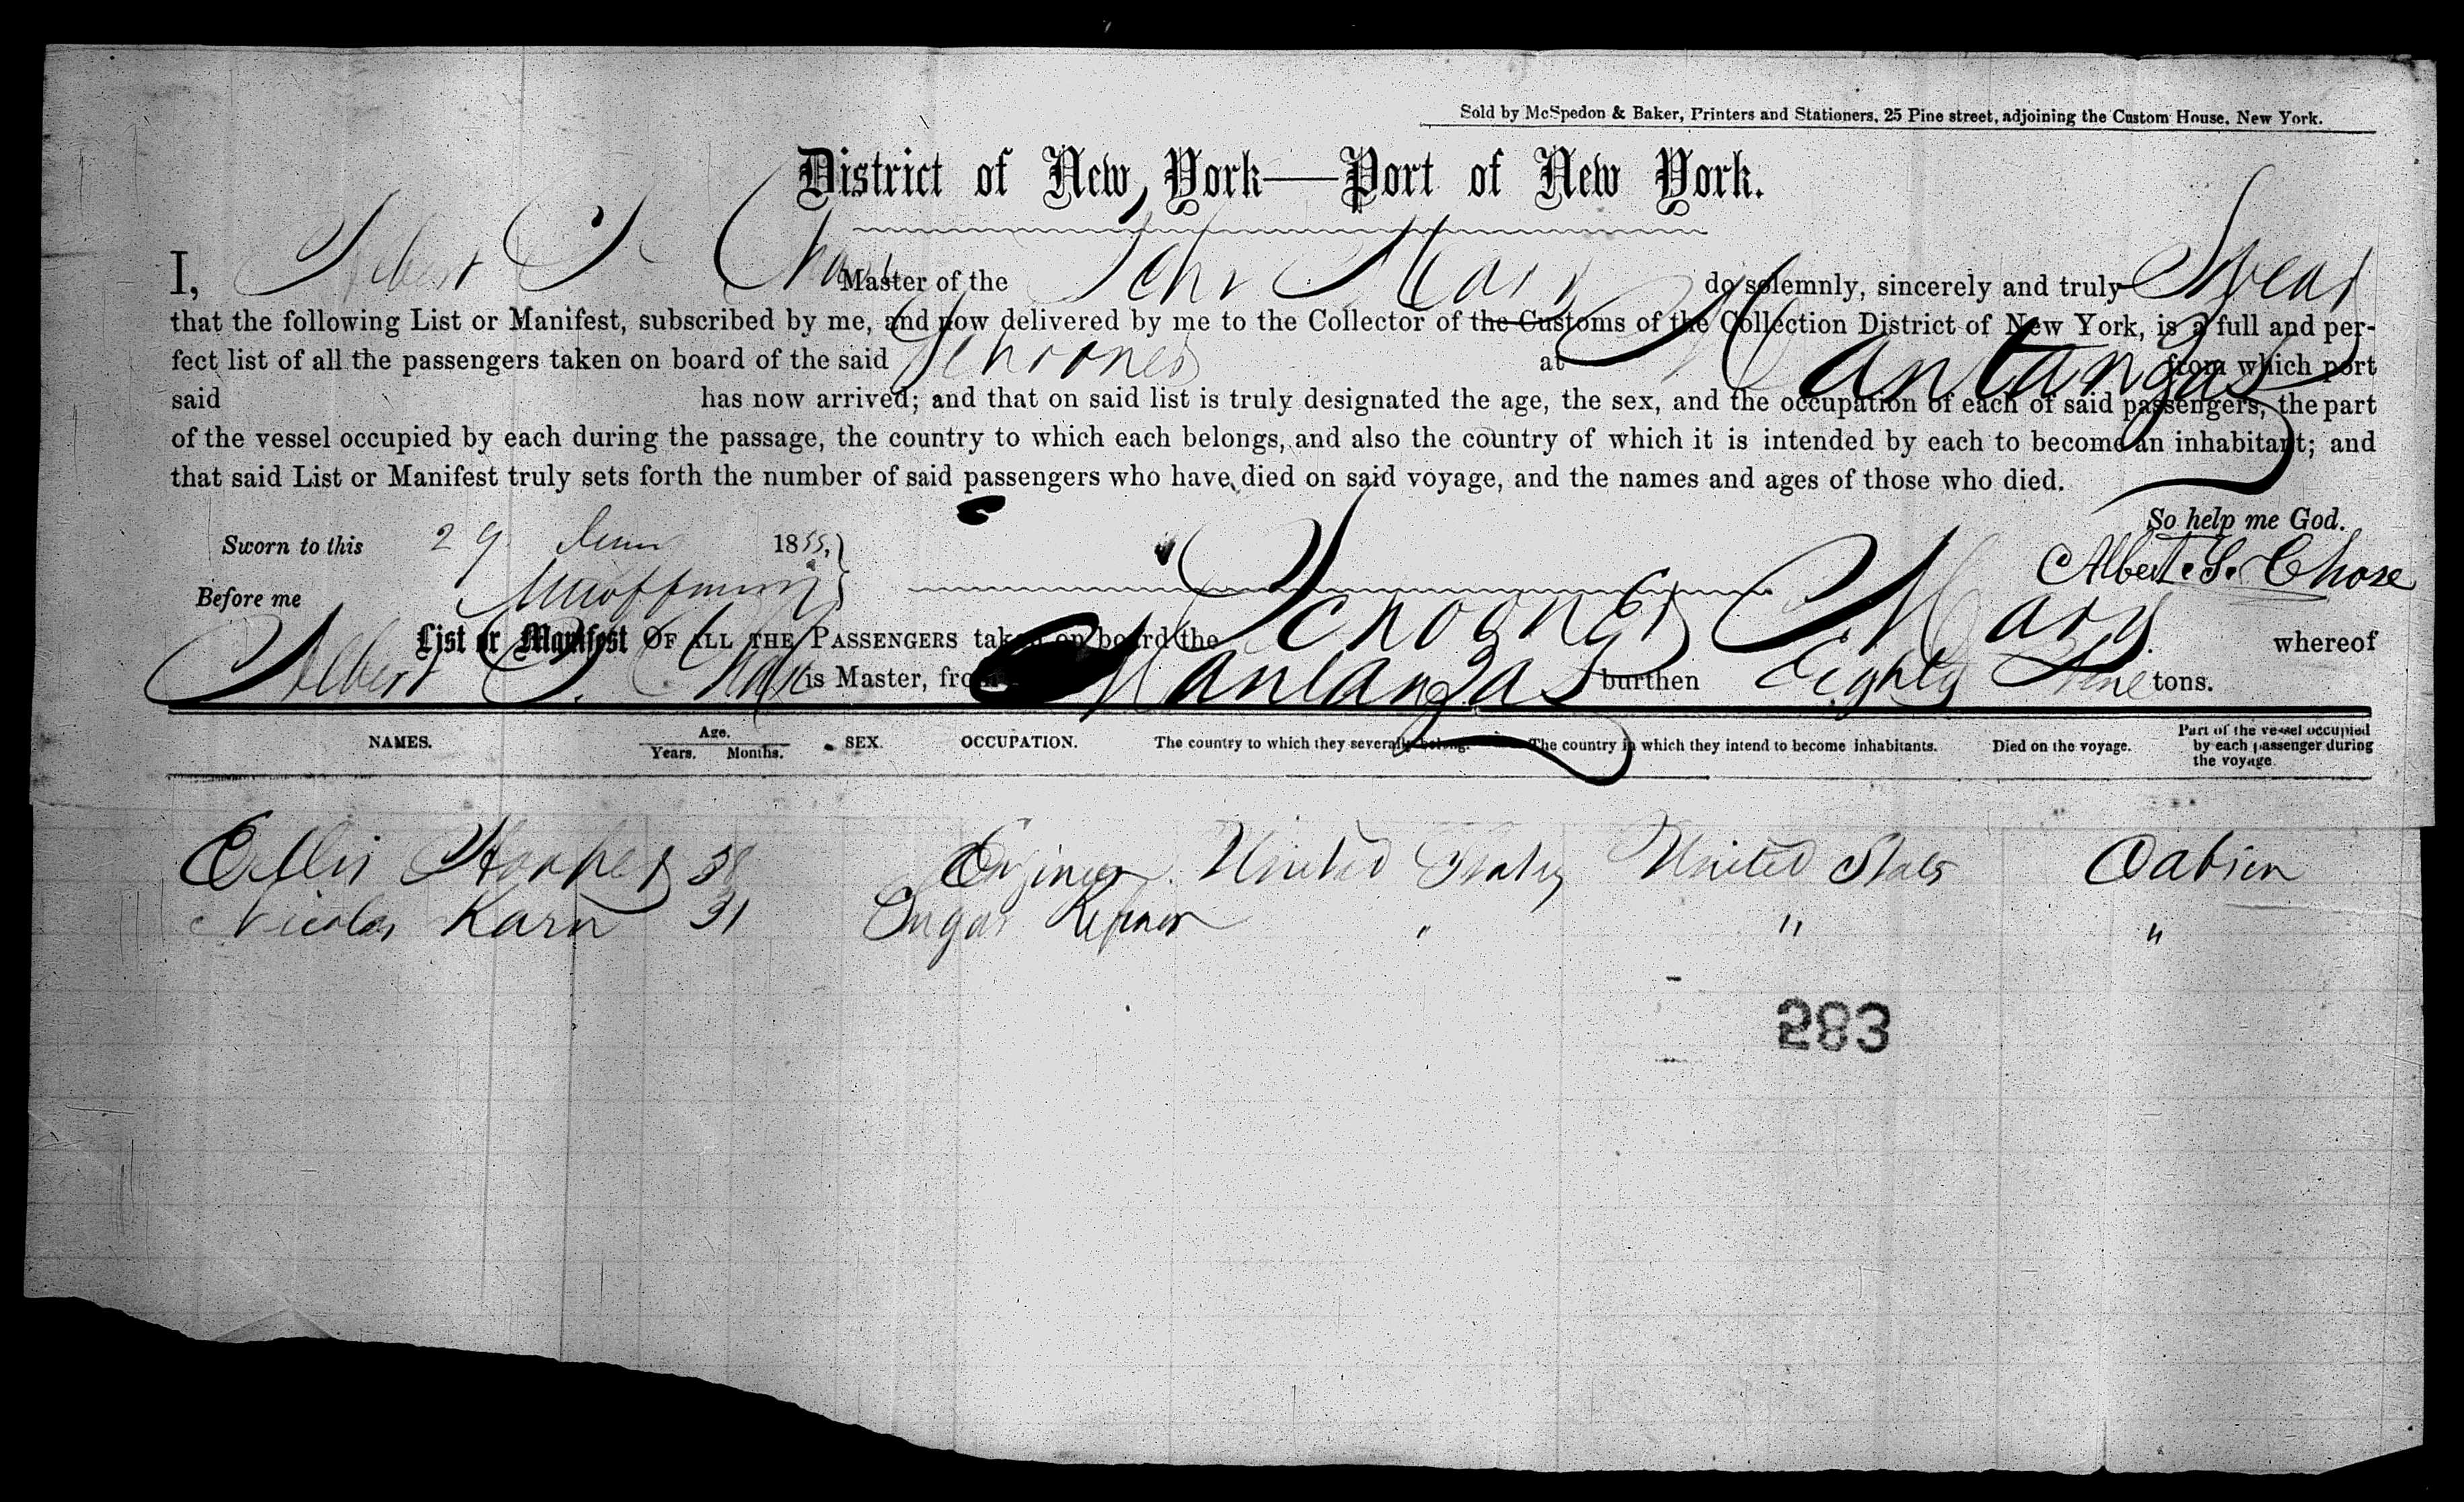 Sold by McSpedon & Baker, Printers and Stationers, 25 Pine street, adjoining the Custom House, New York.
District of New York—Port of New York.
I, Albert S. Chase Master of the Schr Mary do solemnly, sincerely and truly Swear
that the following List or Manifest, subscribed by me, and now delivered by me to the Collector of the Customs of the Collection District of New York, is a full and per-
fect list of all the passengers taken on board of the said Schooner at Mantanzas from which port
said has now arrived; and that on said list is truly designated the age, the sex, and the occupation of each of said passengers, the part
of the vessel occupied by each during the passage, the country to which each belongs, and also the country of which it is intended by each to become an inhabitant; and
that said List or Manifest truly sets forth the number of said passengers who have died on said voyage, and the names and ages of those who died.
So help me God.
Sworn to this 29 June 1855,
Albert. S. Chase
Before me
List or Manifest OF ALL THE PASSENGERS taken on board the Schooner Mary whereof
Albert S. Chase is Master, from Mantanzas burthen Eighty Nine tons.
NAMES. Age. Years. Months. SEX. OCCUPATION. The country to which they severally belong. The country in which they intend to become inhabitants. Died on the voyage. Part of the vessel occupied by each passenger during the voyage
Ellis Hooper 38 Enginer United States United States Cabin
Nicolas Karn 31 Sugar Refiner " " "
283